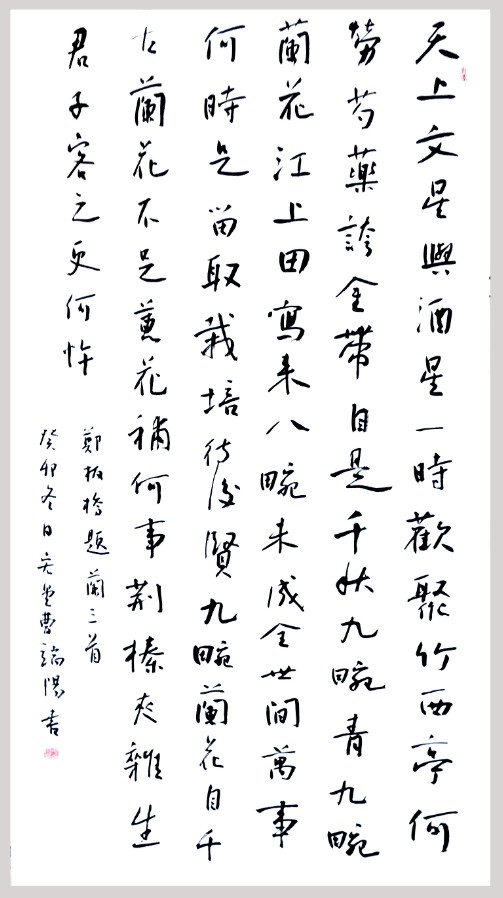 天上文星與酒星一時歡聚竹西亭何
勞芍藥誇金帶自是千秋九畹青九畹
蘭花江上田寫来八畹未成全世間萬事
何時足留取栽培待後賢九畹蘭花自千
古蘭花不足蕙花補何事荊榛夾雜生
君子容之更何忤
鄭板橋題蘭三首
癸卯冬日堂曹端陽書